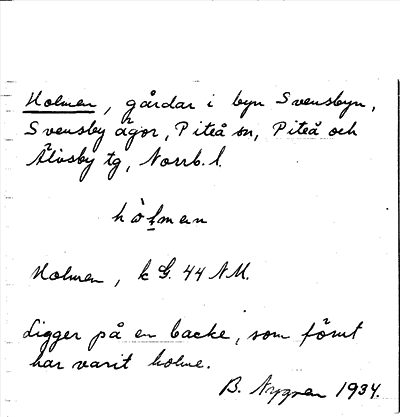 Holmen, gårdar i byn Svensbyn,
Svensby ägor, Piteå sn, Piteå och
Älvsby tg, Norrb. l.
hòļmen
Holmen, k G. 44 NM.
Ligger på en backe, som förut
har varit holme.
B. Nygren 1934.